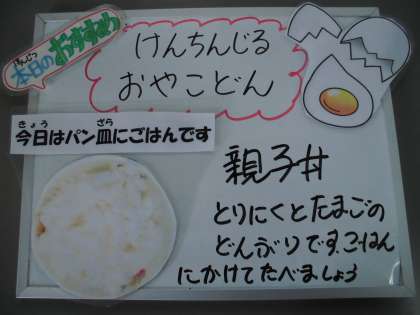 ほんじつ
本日のおすすめ
けんちんじる
おやこどん
きょう
さら
今日はパン皿にごはんです
親子丼
とりにくとたまごの
どんぶりです。ごはん
にかけてたべましょう